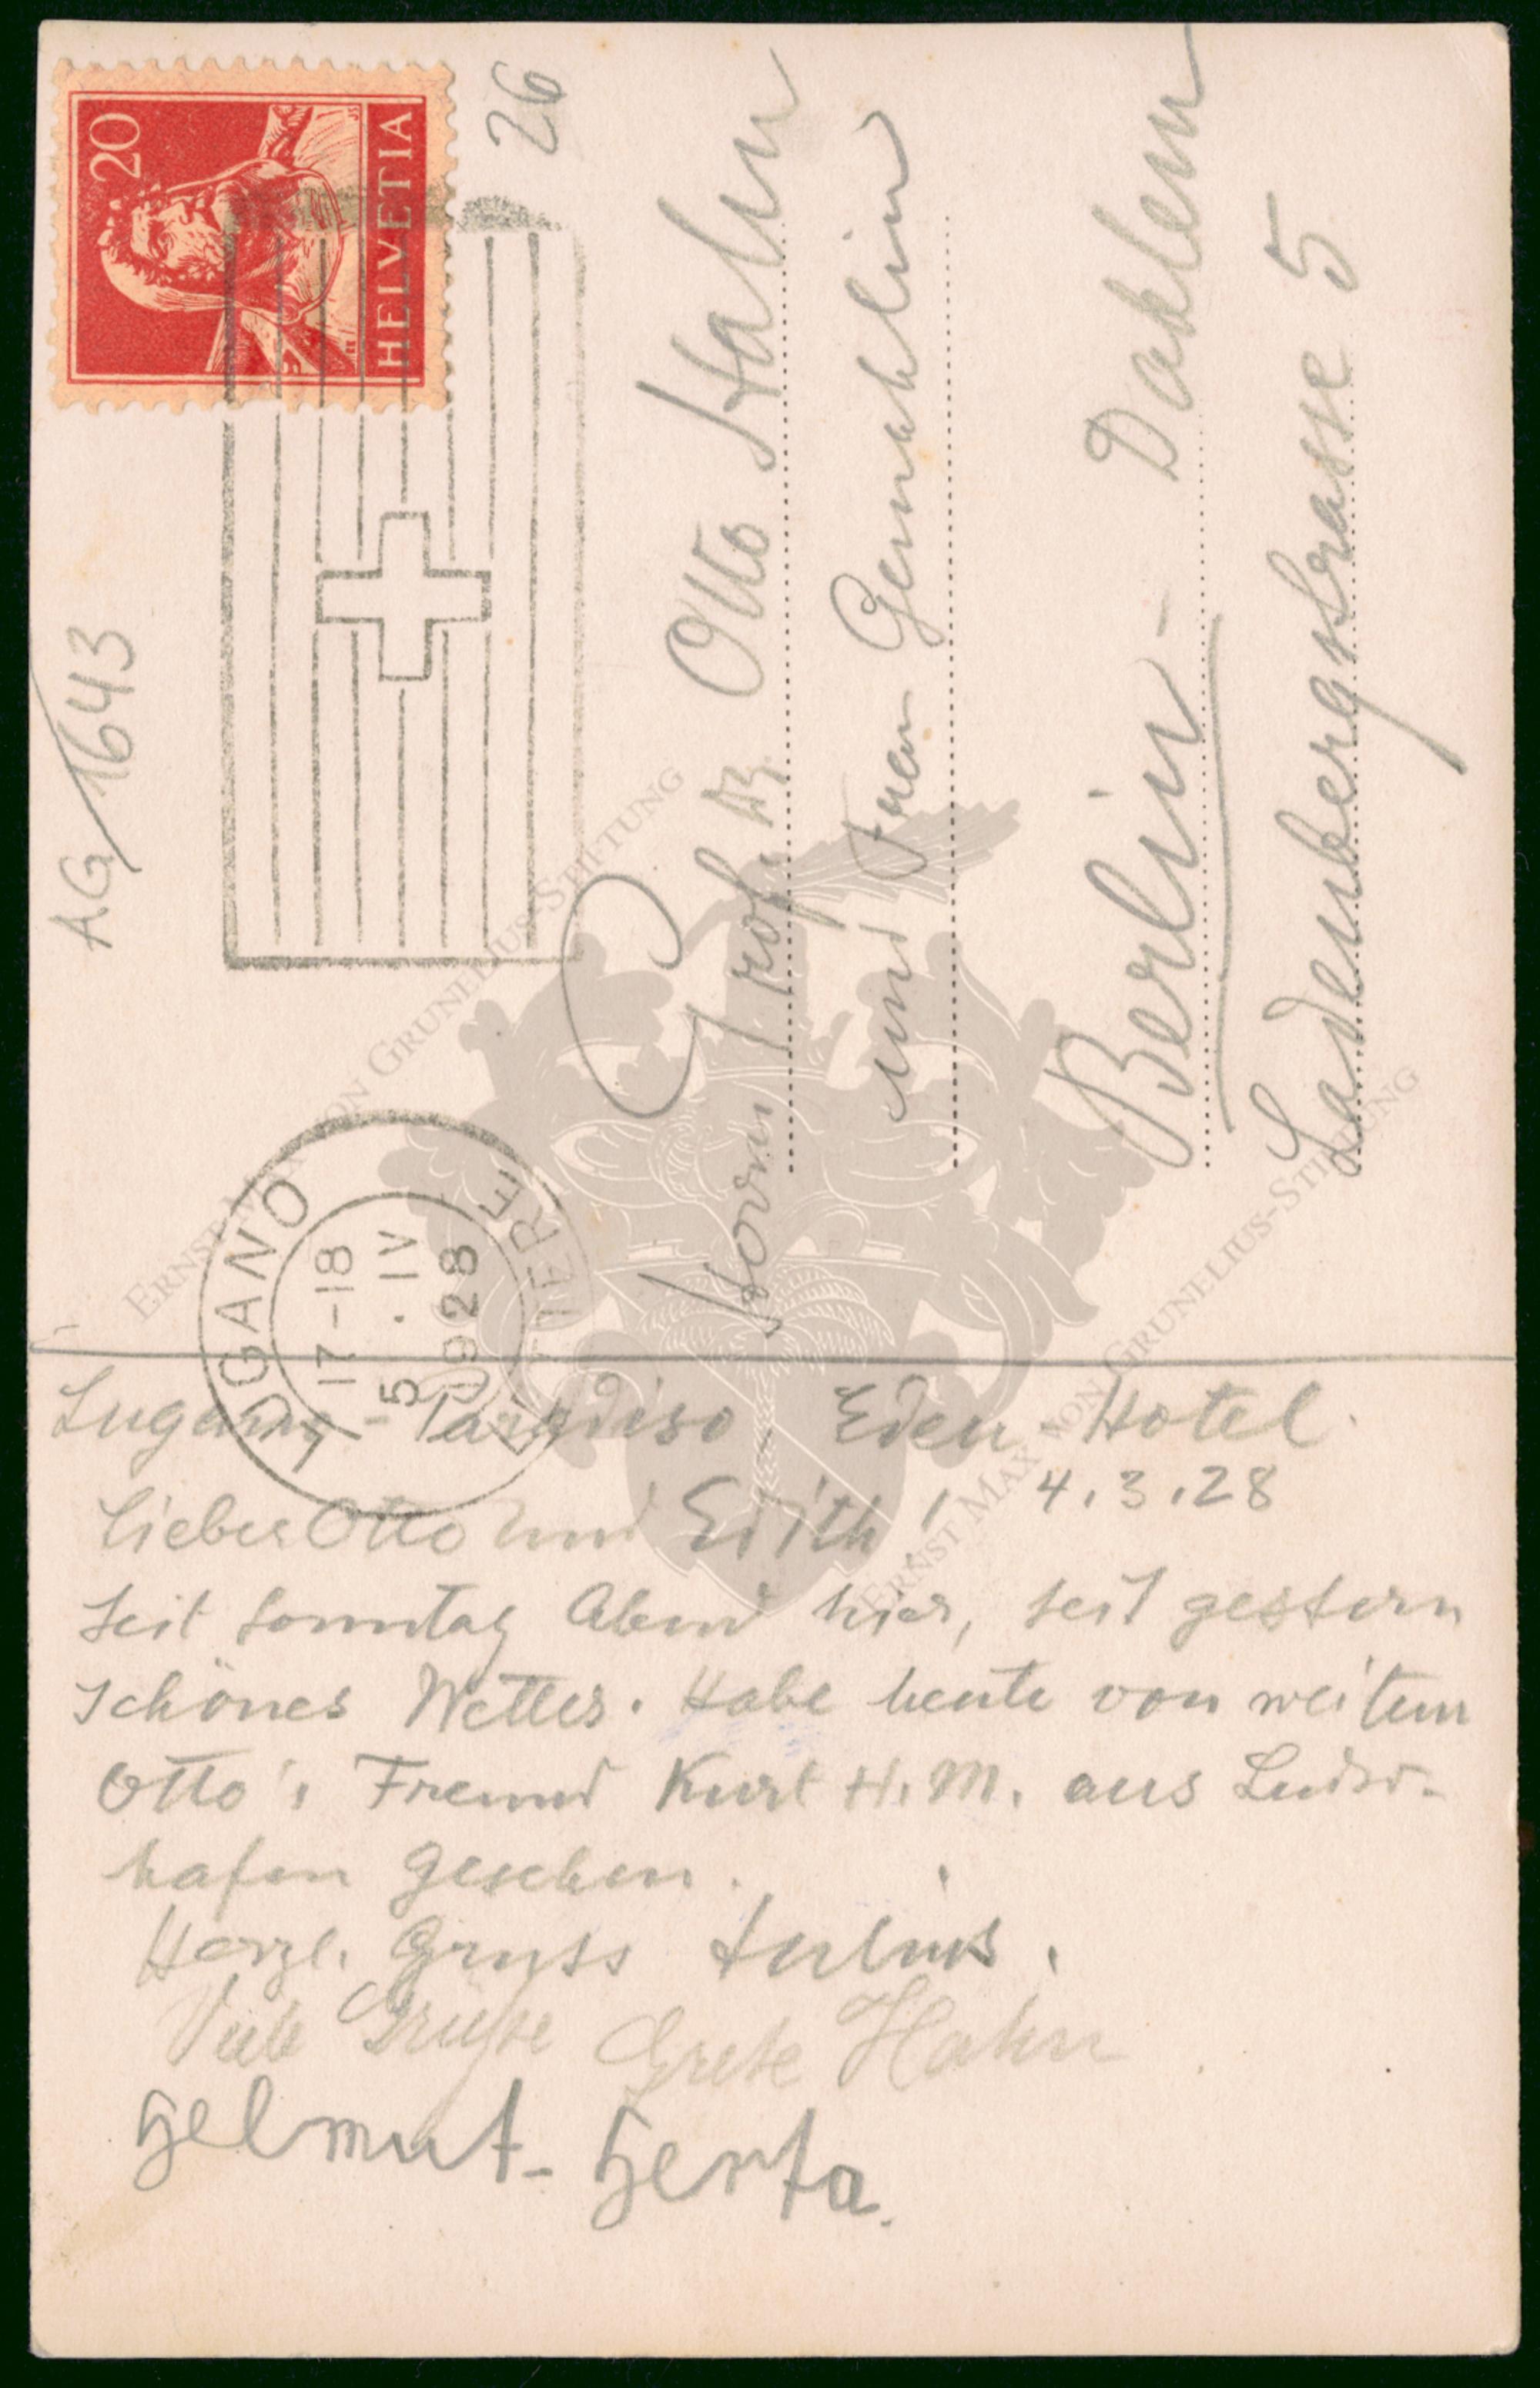 20
HELVETIA
26
AG 1643
LUGANO
17-18
5. IV
1928
Herrn Prof. Dr. Otto Hahn
und Frau Gemahlin
Berlin - Dahlem
Ladenbergstrasse 5
Lugano - Paradiso Eden Hotel.
4.3.28
Lieber Otto und Edith!
Seit Sonntag Abend hier, seit gestern
schönes Wetter. Habe heute von weitem
Otto's Freund Kurt H. M. aus Ludw-
hafen gesehen.
Herzl. Gruss Julius.
Viele Grüße Grete Hahn
Helmut - Herta.
ERNST MAX VON GRUNELIUS-STIFTUNG
ERNST MAX VON GRUNELIUS-STIFTUNG